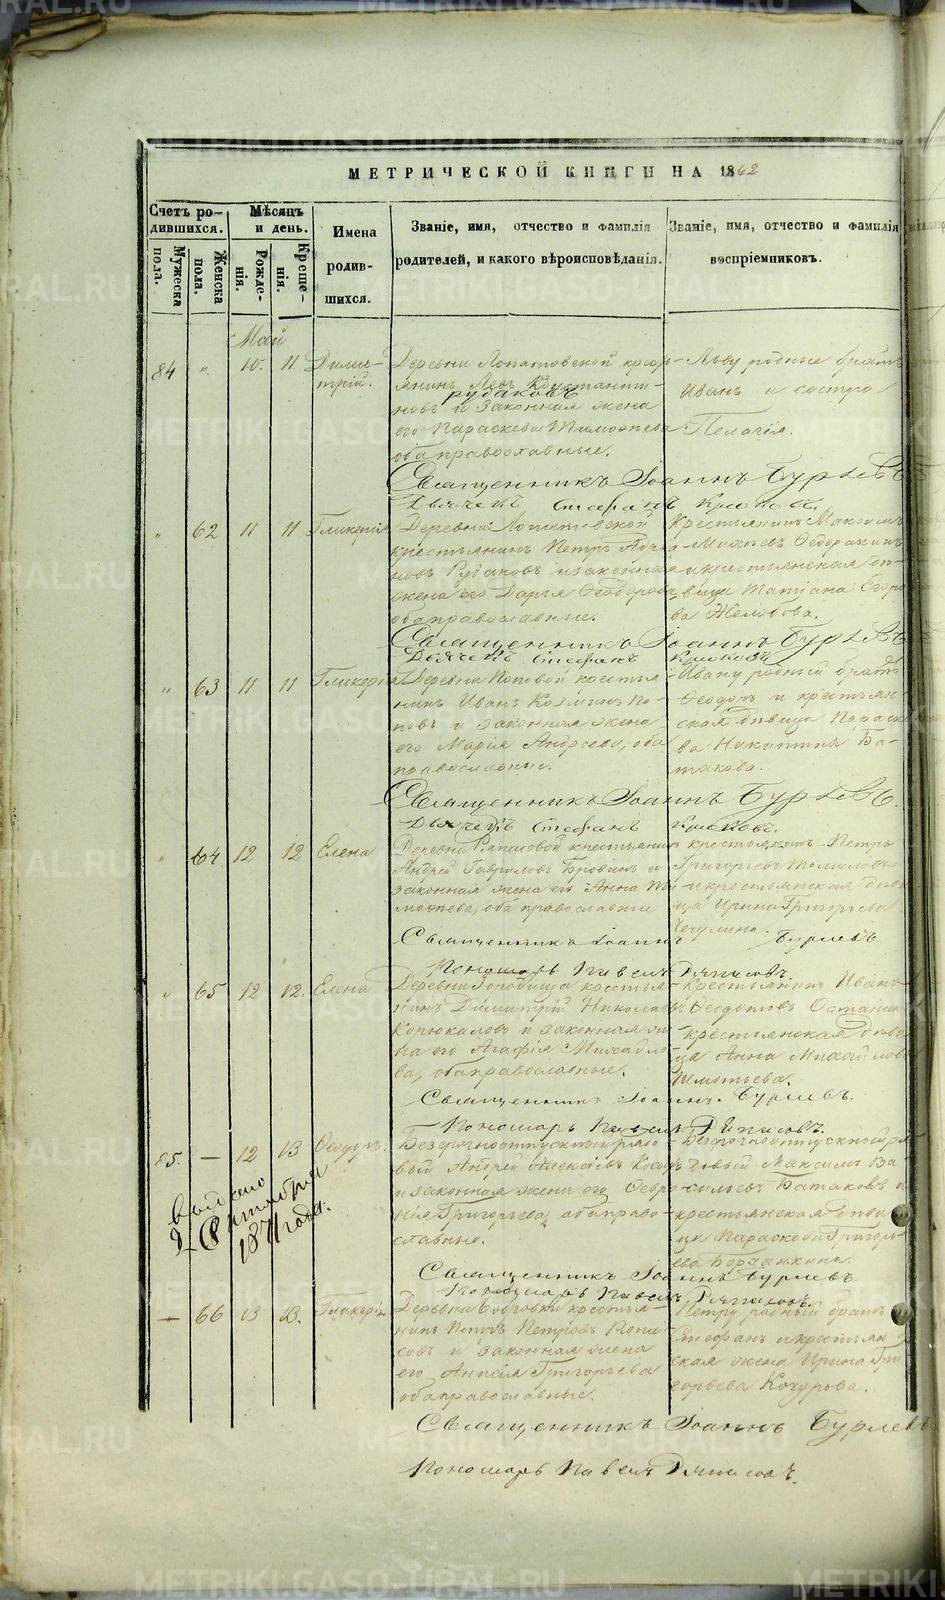 МЕТРИЧЕСКОЙ КНИГИ НА 1862
Счетъ ро-
дившихся.
Мужеска
пола.
Женска
пола.
Мѣсяцъ
и день.
Рожде-
нія.
Креще-
нія.
Имена
родив-
шихся.
Званіе, имя, отчество и фамилія
родителей, и какого вѣроисповѣданія.
Званіе, имя, отчество и фамилія
воспріемниковъ.
Май
84 " 10. 11. Дими-
трій.
Деревни Лопатовской кресть-
янинъ Левъ Константи-
Рудаковъ
новъ и законная жена
его Параскева Тимофеева
оба православные.
Льву родные братъ
Иванъ и сестра
Пелагія.
Священникъ Іоаннъ Бурлевъ
Дьячекъ Стефанъ
" 62 11 11 Гликерія
Деревни Лопатовской
крестьянинъ Петръ
новъ Рудаковъ и законная
жена его Дарья Феодорова,
оба православные.
Крестьянинъ Максимъ
и крестьянская дѣ-
вица Татіана Егоро-
ва
Священникъ Іоаннъ Бурлевъ
Дьячекъ Стефанъ
" 63 11 11 Гликерія
Деревни Поповой крестья-
нинъ Иванъ Козминъ По-
повъ и законная жена
его Марія Андреева, оба
православные.
Ивану родный братъ
Феодоръ и крестьян-
ская дѣвица Параске-
ва Никитина Ба-
такова.
Священникъ Іоаннъ Бурлевъ.
Дьячекъ Стефанъ
" 64 12 12 Елена
Деревни крестьянинъ
Андрей Гавриловъ Бровинъ и
законная жена его Анна Ти-
мофеева, оба православные
крестьянинъ Петръ
Григорьевъ
и крестьянская дѣви-
ца Ирина Григорьева
Чечулина.
Священникъ Іоаннъ Бурлевъ
Пономарь Павелъ
" 65 12 12. Елена
Деревни крестья-
нинъ Димитрій Николаевъ
Корюкаловъ и законная же-
на его Агафія Михайло-
ва, оба православные.
Крестьянинъ Иванъ
Феодотовъ Останинъ
крестьянская дѣви-
ца Анна Михайлова
Священникъ Іоаннъ Бурлевъ.
Пономарь Павелъ
85. — 12 13 Феодоръ.
Выдано
2 Сентября
1871 года.
Безсрочноотпускный рядо-
вый Андрей Алексѣевъ
и законная жена его Февро-
нія Григорьева, оба право-
славные.
Безсрочноотпускный ря-
довый Максимъ Ва-
сильевъ Батаковъ и
крестьянская дѣви-
ца Параскева Григорь-
ева
Священникъ Іоаннъ Бурлевъ
Пономарь Павелъ
— 66 13 13. Гликерія
Деревни Бобровки крестья-
нинъ Петръ Петровъ
и законная жена
его Анисія Григорьева
оба православные.
Петру родный братъ
Стефанъ и крестьян-
ская жена Ирина Гри-
горьева Кочурова.
Священникъ Іоаннъ Бурлевъ
Пономарь Павелъ
METRIKI.GASO-URAL.RU